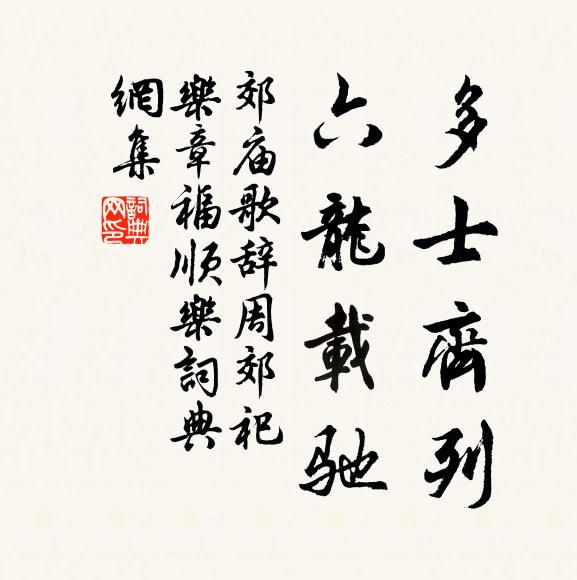 多士齊列
六龍載馳
郊庙歌辞周郊祀
樂章福順樂詞典
網集
詞典网印